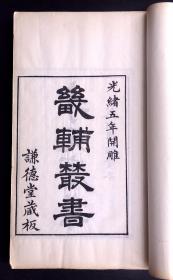 光緒五年開雕
畿輔叢書
謙德堂藏板